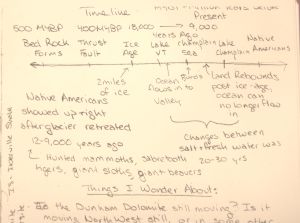 Time Line
500 MYBP 400 MYBP 18,000 → 9,000 Present
Years Ago
Bed Rock Forms
Thrust Fault
Ice Age
Lake VT
Champlain Sea
Lake Champlain
Native Americans
2 miles of ice
Ocean flows into Valley
Land Rebounds post ice-age, ocean can no longer flow in
Native Americans
showed up right
after glacier retreated
12-9,000 years ago
↳ Hunted mammoths, sabretooth
tigers, giant sloths, giant beavers
Changes between
salt + fresh water was
20-30 yrs
Things I Wonder About:
the Dunham Dolomite still moving? Is it
moving North West still, or in some other